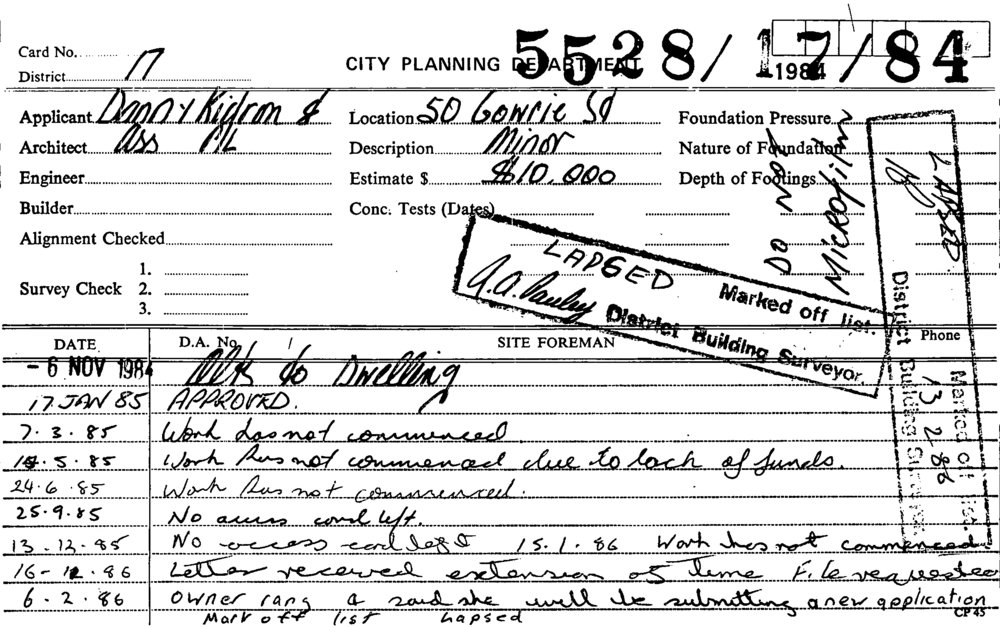 Card No. 5528/17/84
District 17 CITY PLANNING DEPARTMENT 1984
Applicant Danny Kidron & Location 50 Gowrie St Foundation Pressure
Architect Ass P/L Description Minor Nature of Foundation
Engineer Estimate $ $10,000 Depth of Footings
Builder Conc. Tests (Dates)
Alignment Checked
1.
Survey Check 2.
3.
DO NOT
MICROFILM
LAPSED
Marked off list.
District Building Surveyor.
LAPSED
Marked off list.
13 2 86
District Building Surveyor.
DATE D.A. No. SITE FOREMAN Phone
- 6 NOV 1984 Alts to Dwelling
17 JAN 85 APPROVED.
7.3.85 Work has not commenced.
5.85 Work has not commenced due to lack of funds.
24.6.85 Work has not commenced.
25.9.85 No access card left.
13.12.85 No access card left 15.1.86 Work has not commenced.
16-86 Letter received extension of time File requested
6.2.86 Owner rang & said she will be submitting a new application
Mark off list Lapsed
CP 45